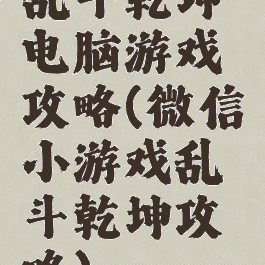 乱斗乾坤
电脑游戏
攻略(微信
小游戏乱
斗乾坤攻
略)